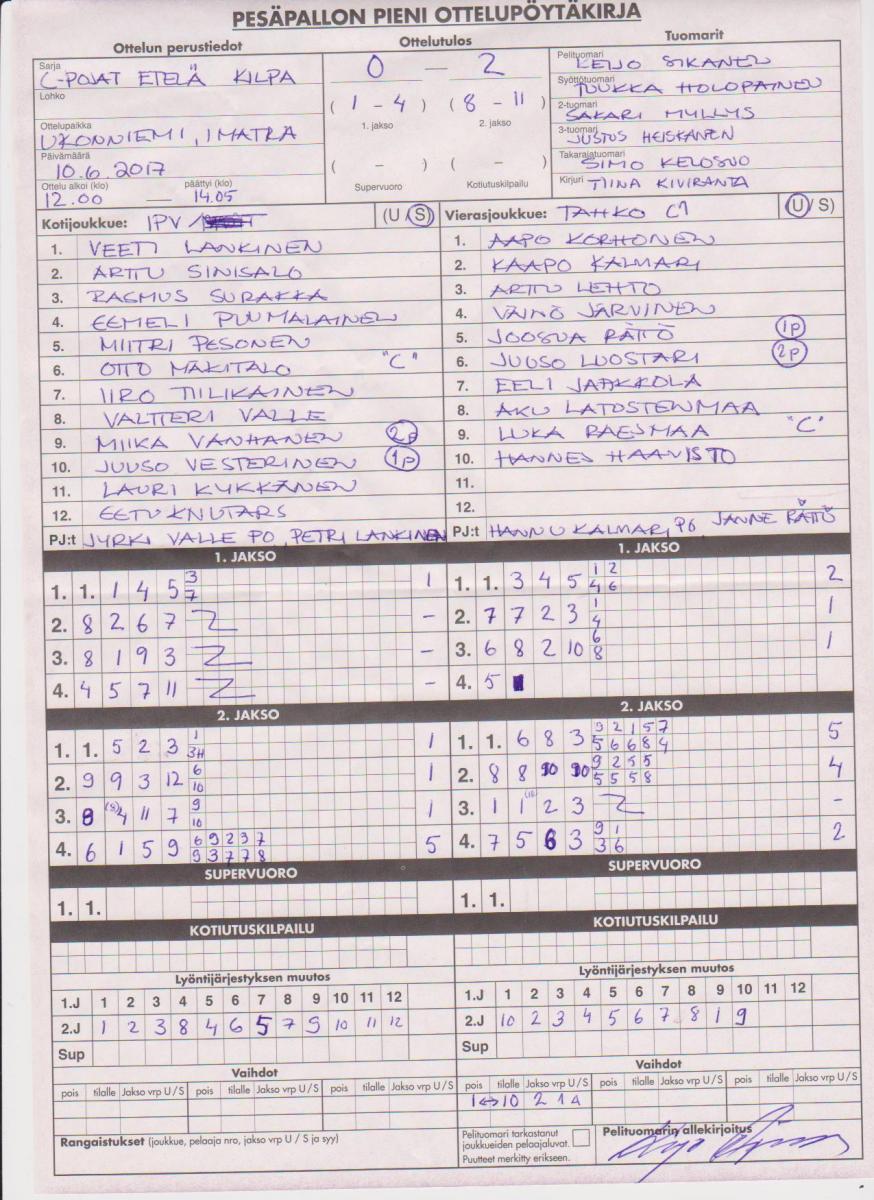 PESÄPALLON PIENI OTTELUPÖYTÄKIRJA
Ottelun perustiedot
Ottelutulos
Tuomarit
Sarja
C-POJAT ETELÄ KILPA
Lohko
Ottelupaikka
UKONNIEMI, IMATRA
Päivämäärä
10.6.2017
Ottelu alkoi (klo) päättyi (klo)
12.00 — 14.05
0 — 2
( 1 - 4 ) ( 8 - 11 )
1. jakso 2. jakso
( - ) ( - )
Supervuoro Kotiutuskilpailu
Pelituomari
REIJO SIKANEN
Syöttötuomari
TUUKKA HOLOPAINEN
2-tuomari
SAKARI MYLLYS
3-tuomari
JUSTUS HEISKANEN
Takarajatuomari
SIMO KELOSUO
Kirjuri TIINA KIVIRANTA
Kotijoukkue: IPV (U/S)
1. VEETI LANKINEN
2. ARTTU SINISALO
3. RASMUS SURAKKA
4. EEMELI PUUMALAINEN
5. MIITRI PESONEN
6. OTTO MÄKITALO "C"
7. IIRO TIILIKAINEN
8. VALTTERI VALLE
9. MIIKA VANHANEN 2p
10. JUUSO VESTERINEN 1p
11. LAURI KYKKÄNEN
12. EETU KNUTARS
PJ:t JYRKI VALLE PO, PETRI LANKINEN
Vierasjoukkue: TAHKO C1 (U/S)
1. AAPO KORHONEN
2. KAAPO KALMARI
3. ARTTU LEHTO
4. VÄINÖ JÄRVINEN
5. JOOSUA RÄTTÖ 1p
6. JUUSO LUOSTARI 2p
7. EELI JAAKKOLA
8. AKU LATOSTENMAA
9. LUKA RAESMAA "C"
10. HANNES HAAVISTO
11.
12.
PJ:t HANNU KALMARI, P6 JANNE RÄTTÖ
1. JAKSO
1. 1. 1 4 5 3 7 1
2. 8 2 6 7 -
3. 8 1 9 3 -
4. 4 5 7 11 -
1. JAKSO
1. 1. 3 4 5 1 2 4 6 2
2. 7 7 2 3 1 4 1
3. 6 8 2 10 6 8 1
4. 5
2. JAKSO
1. 1. 5 2 3 1 3H 1
2. 9 9 3 12 6 10 1
3. 8 (8) 4 11 7 9 10 1
4. 6 1 5 9 6 9 2 3 7 9 3 7 7 8 5
2. JAKSO
1. 1. 6 8 3 9 2 1 5 7 5 6 6 8 4 5
2. 8 8 10 10 9 2 5 5 5 5 5 8 4
3. 1 1 (10) 2 3 -
4. 7 5 6 3 9 1 3 6 2
SUPERVUORO
1. 1.
SUPERVUORO
1. 1.
KOTIUTUSKILPAILU
KOTIUTUSKILPAILU
Lyöntijärjestyksen muutos
1.J 1 2 3 4 5 6 7 8 9 10 11 12
2.J 1 2 3 8 4 6 5 7 9 10 11 12
Sup
Lyöntijärjestyksen muutos
1.J 1 2 3 4 5 6 7 8 9 10 11 12
2.J 10 2 3 4 5 6 7 8 1 9
Sup
Vaihdot
pois tilalle Jakso vrp U/S pois tilalle Jakso vrp U/S pois tilalle Jakso vrp U/S
Vaihdot
pois tilalle Jakso vrp U/S pois tilalle Jakso vrp U/S pois tilalle Jakso vrp U/S
1↔10 2 1A
Rangaistukset (joukkue, pelaaja nro, jakso vrp U/S ja syy)
Pelituomari tarkastanut
joukkueiden pelaajaluvat.
Puutteet merkitty erikseen.
Pelituomarin allekirjoitus